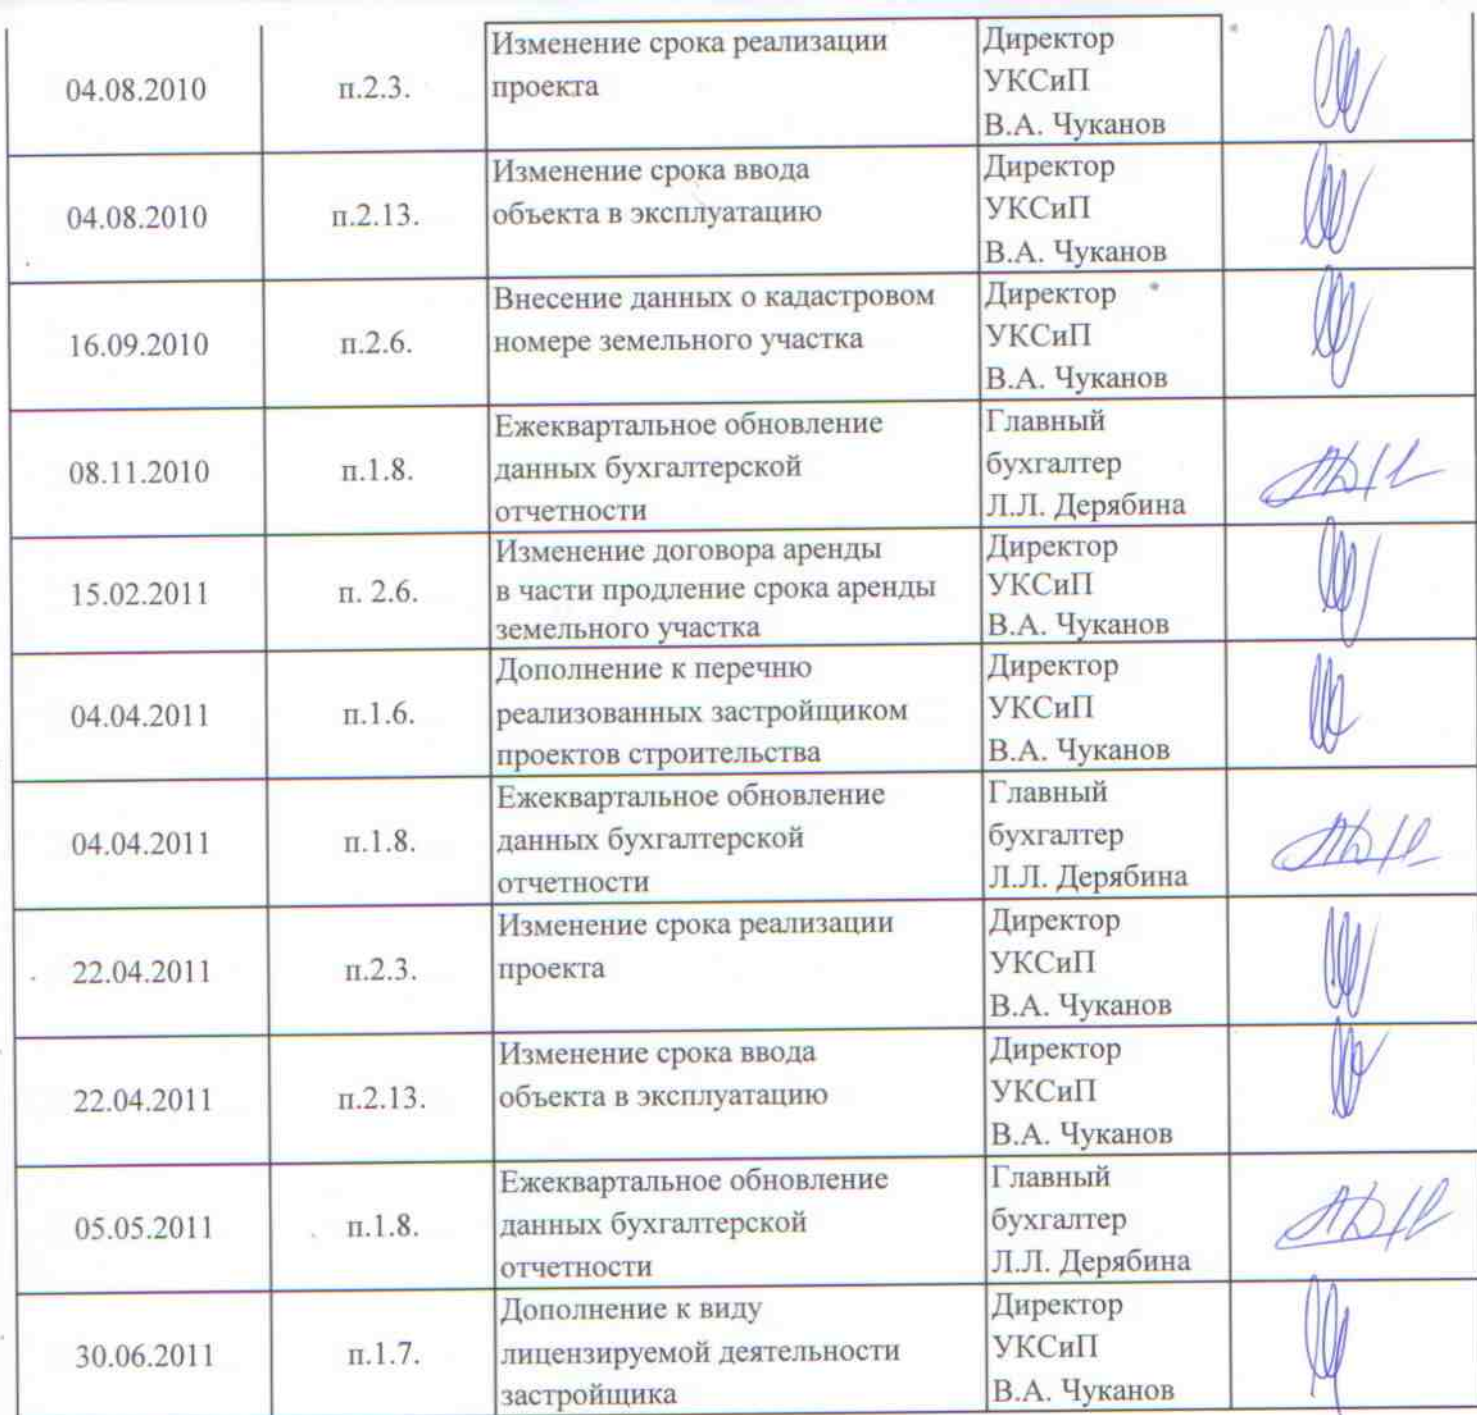 04.08.2010
п.2.3.
Изменение срока реализации
проекта
Директор
УКСиП
В.А. Чуканов
04.08.2010
п.2.13.
Изменение срока ввода
объекта в эксплуатацию
Директор
УКСиП
В.А. Чуканов
16.09.2010
п.2.6.
Внесение данных о кадастровом
номере земельного участка
Директор
УКСиП
В.А. Чуканов
08.11.2010
п.1.8.
Ежеквартальное обновление
данных бухгалтерской
отчетности
Главный
бухгалтер
Л.Л. Дерябина
15.02.2011
п. 2.6.
Изменение договора аренды
в части продление срока аренды
земельного участка
Директор
УКСиП
В.А. Чуканов
04.04.2011
п.1.6.
Дополнение к перечню
реализованных застройщиком
проектов строительства
Директор
УКСиП
В.А. Чуканов
04.04.2011
п.1.8.
Ежеквартальное обновление
данных бухгалтерской
отчетности
Главный
бухгалтер
Л.Л. Дерябина
22.04.2011
п.2.3.
Изменение срока реализации
проекта
Директор
УКСиП
В.А. Чуканов
22.04.2011
п.2.13.
Изменение срока ввода
объекта в эксплуатацию
Директор
УКСиП
В.А. Чуканов
05.05.2011
п.1.8.
Ежеквартальное обновление
данных бухгалтерской
отчетности
Главный
бухгалтер
Л.Л. Дерябина
30.06.2011
п.1.7.
Дополнение к виду
лицензируемой деятельности
застройщика
Директор
УКСиП
В.А. Чуканов